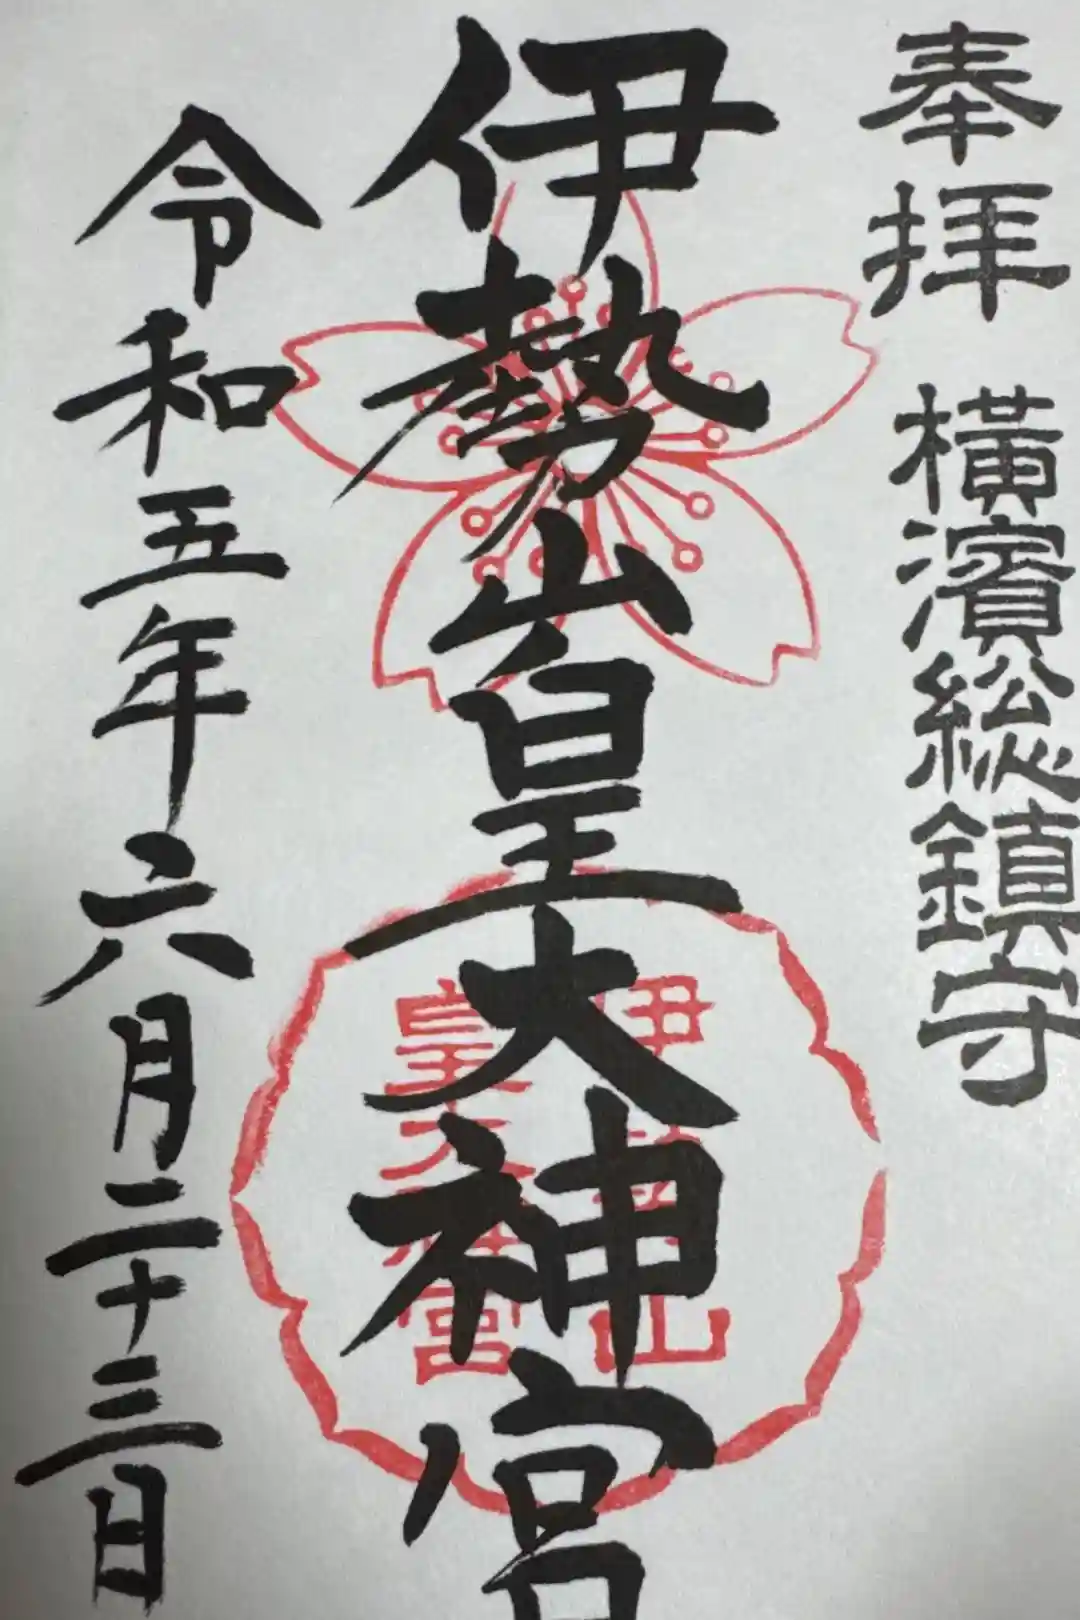 奉拝 橫濱総鎮守
伊勢山皇大神宮
伊勢山
皇大神宮
令和五年六月二十三日